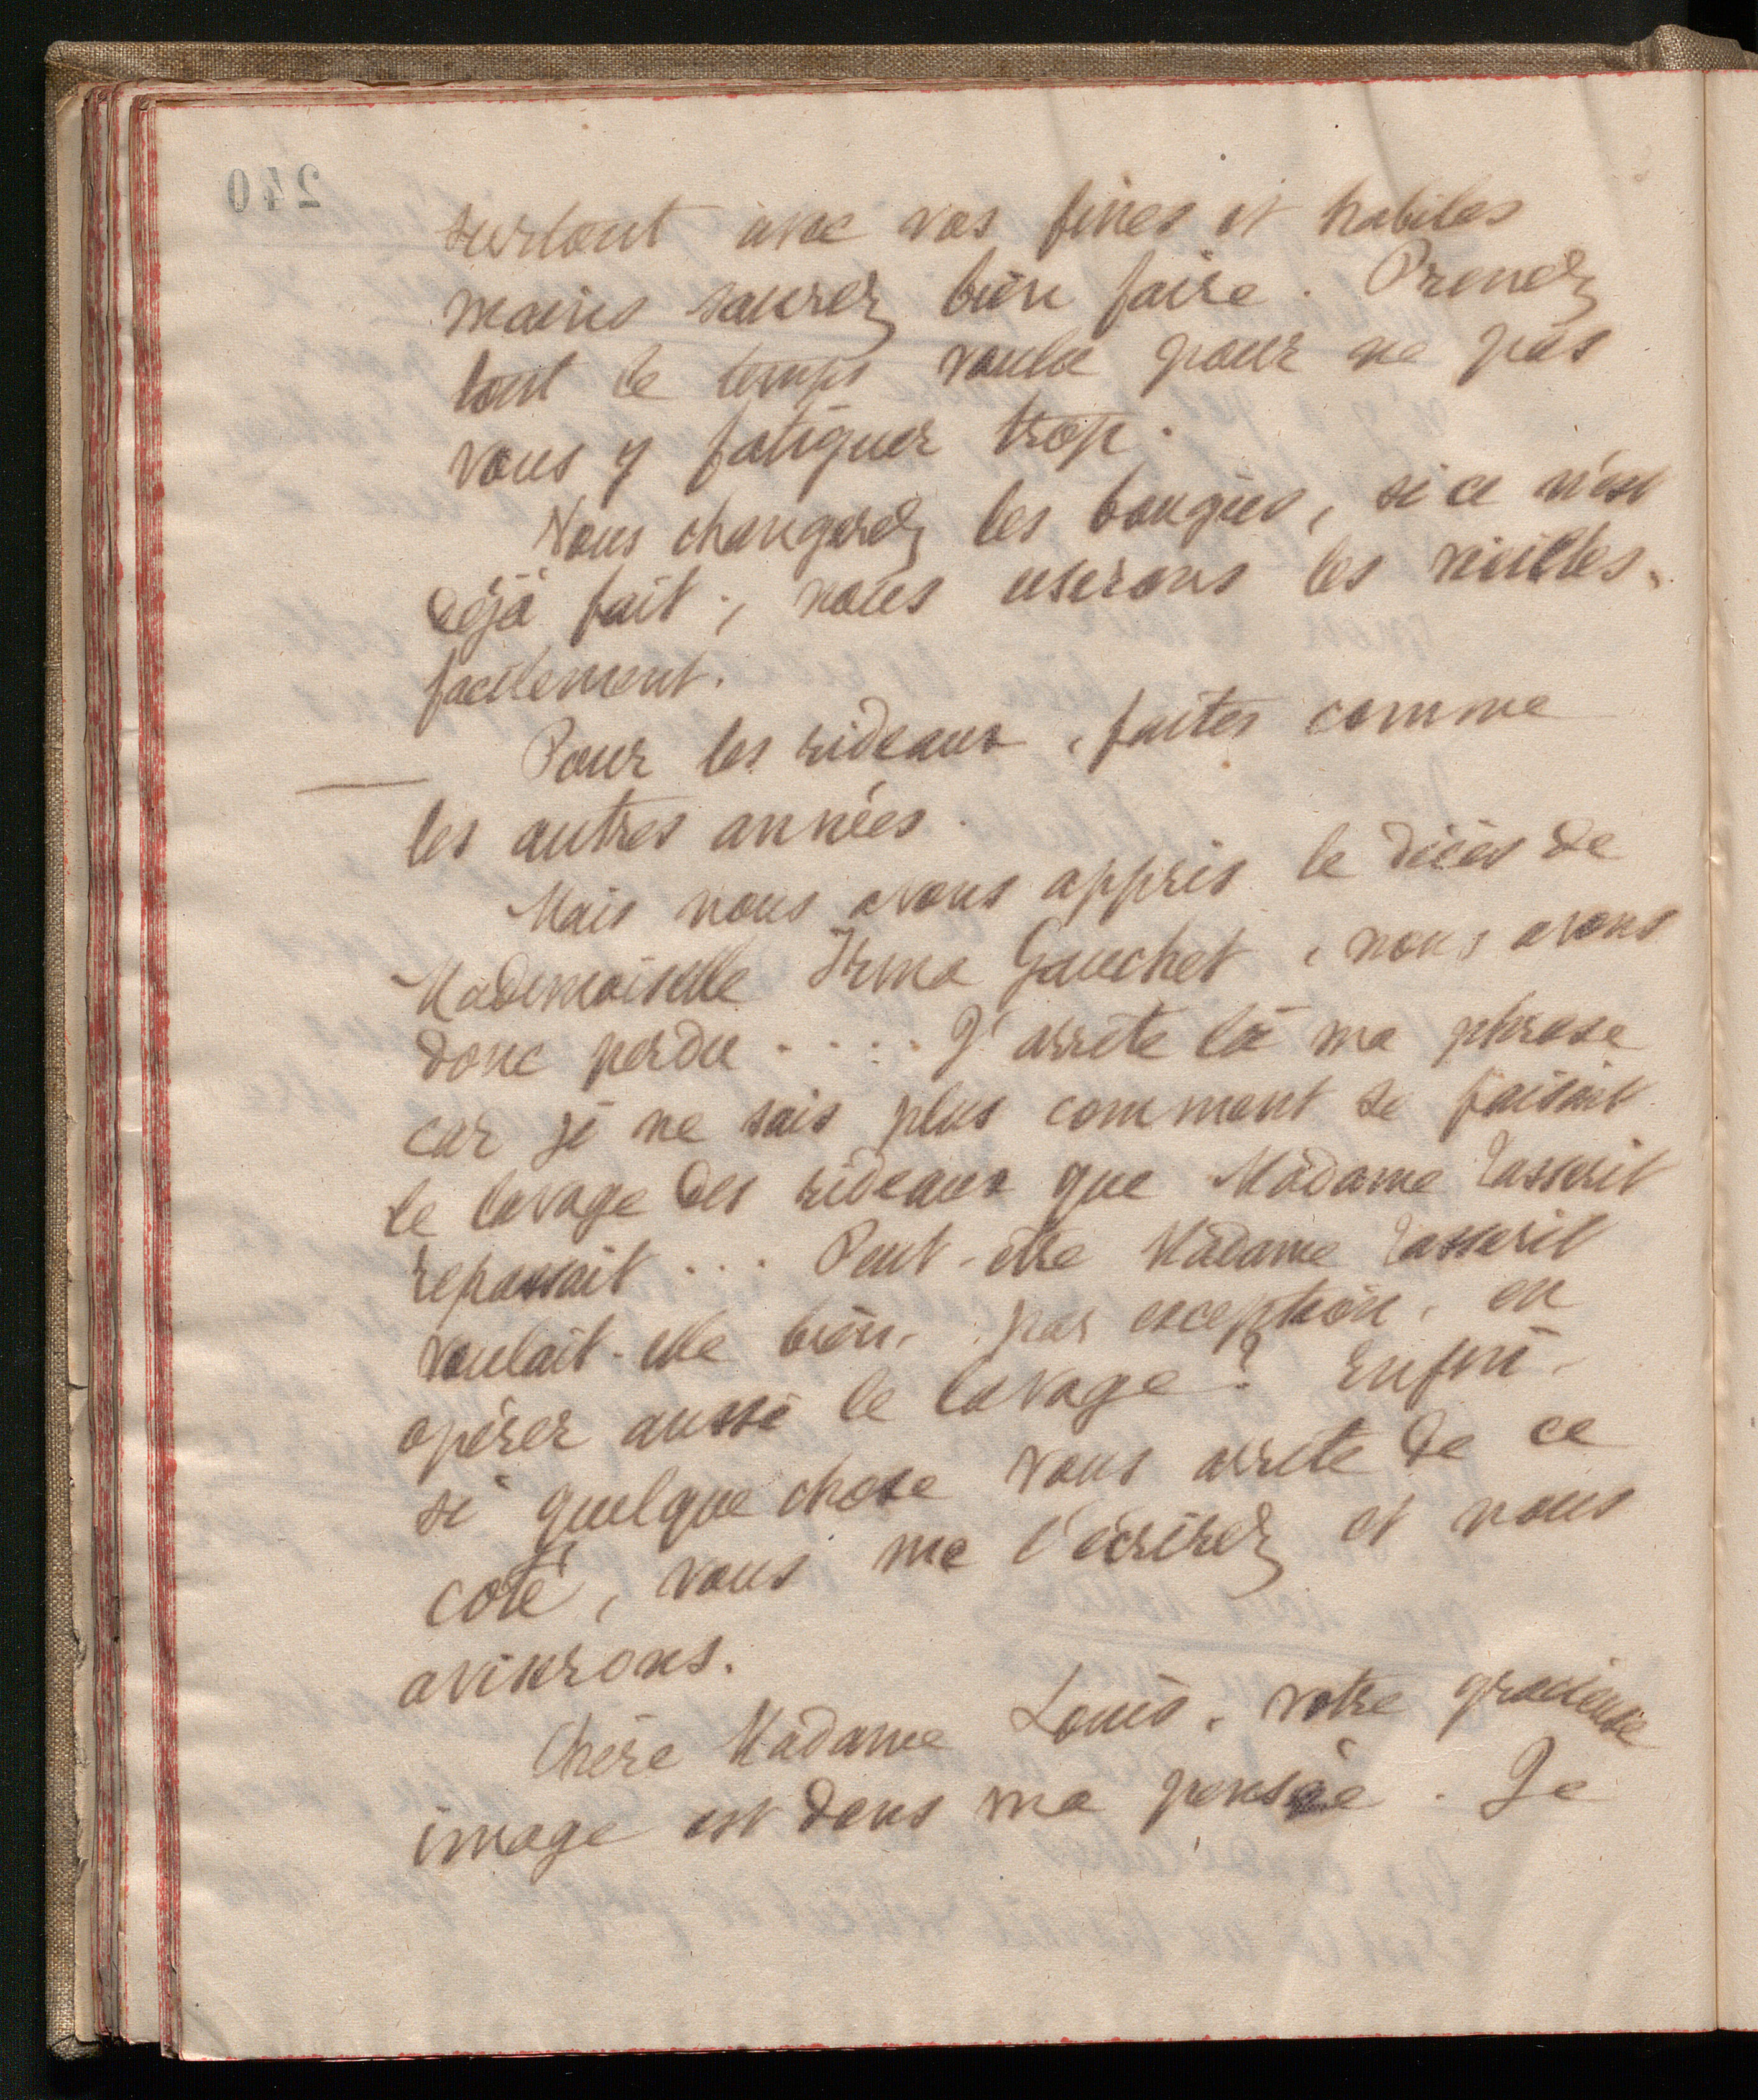 240
surtout avec vos fines et habiles
mains saurez bien faire. Prenez
tout le temps voulu pour ne pas
vous y fatiguer trop.
Vous changerez les bougies, si ce n'est
déjà fait ; nous userons les vieilles
facilement.
Pour les rideaux, faites comme
les autres années.
Mais nous avons appris le décès de
Mademoiselle Irma Gauchet, nous avons
donc perdu .... J'arrête là ma phrase
car je ne sais plus comment se faisait
le lavage des rideaux que Madame
repassait ... Peut-être Madame
voulait-elle bien, par exception, en
opérer aussi le lavage ? Enfin,
si quelque chose vous arrête de ce
côté, vous me l'écrirez et nous
aviserons.
Chère Madame Louis, votre gracieuse
image est dans ma pensée. Je